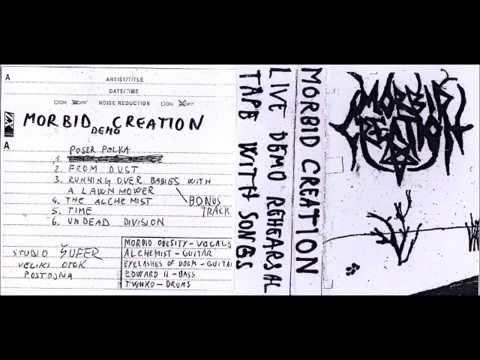 A
ARTIST/TITLE
DATE/TIME
ON OFF NOISE REDUCTION ON OFF
MORBID CREATION
DEMO
A
POSER POLKA
1.
2. FROM DUST
3. RUNNING OVER BABIES WITH
A LAWNMOWER
4. THE ALCHEMIST
BONUS
TRACK
5. TIME
6. UNDEAD DIVISION
STUDIO ŠUFER
VELIKI OTOK
POSTOJNA
MORBID OBESITY - VOCALS
ALCHEMIST - GUITAR
EYELASHES OF DOOM - GUITAR
EDWARD II - BASS
TWINKO - DRUMS
MORBID CREATION
LIVE DEMO REHEARSAL
TAPE WITH SONGS
MORBID
CREATION